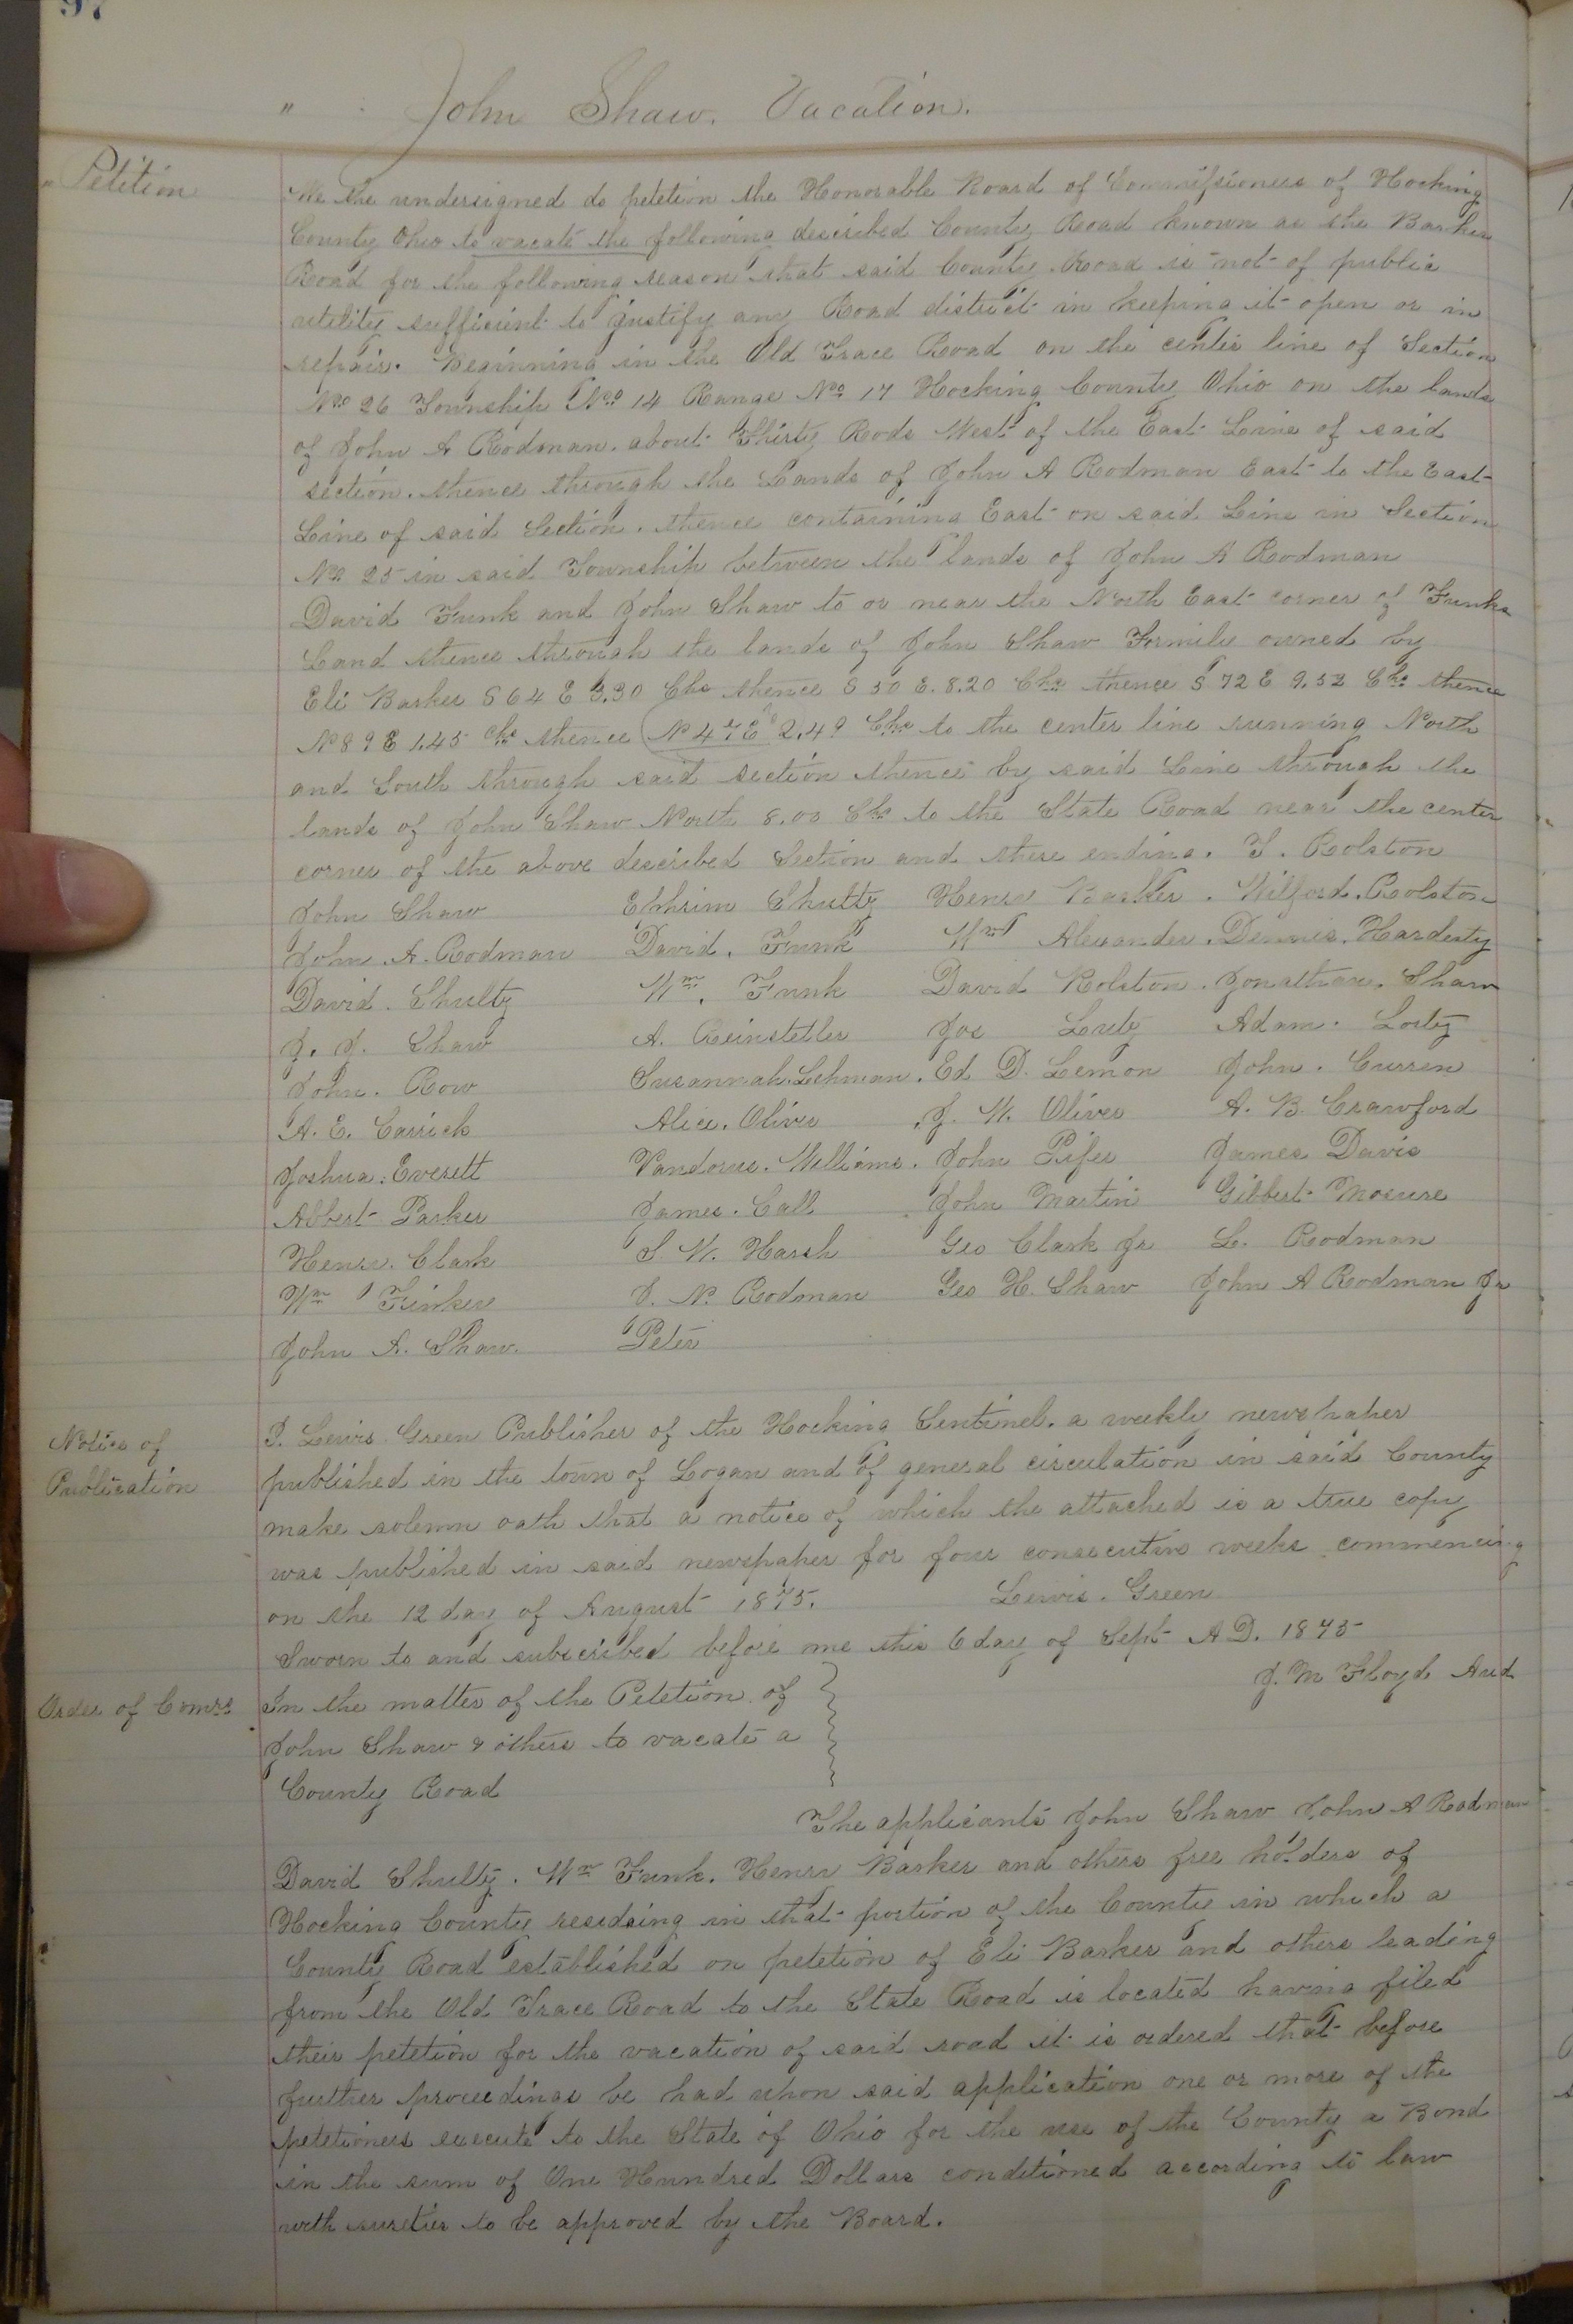 97
" John Shaw. Vacation.
Petition
We the undersigned do petetion the Honorable Board of Commissioners of Hocking
County Ohio to vacate the following described County Road known as the Barker
Road for the following reason that said County Road is not of public
utility sufficient to justify any Road district in keeping it open or in
repair. Beginning in the Old Trace Road on the center line of Section
No 26 Township No 14 Range No 17 Hocking County Ohio on the lands
of John A Rodman. about Thirty Rods West of the East Line of said
section. thence through the Lands of John A Rodman East to the East
Line of said Section. thence containing East on said Line in Section
No 25 in said Township between the lands of John A Rodman
David Funk and John Shaw to or near the North East corner of Funks
Land thence through the lands of John Shaw Formily owned by
Eli Barker S 64 E 3.30 Chs thence S 50 E. 8.20 Chs thence S 72 E 9.52 Chs thence
N 89 E 1.45 chs thence N 47 E 2.49 Chs to the center line running North
and South through said section thence by said Line through the
lands of John Shaw North 8.00 Chs to the State Road near the center
corner of the above described Section and there ending. T. Rolston
John Shaw Ephrim Shultz Henry Barker. Wilford. Rolston
John. A. Rodman David. Funk Wm Alexander. Dennis. Hardesty
David. Shultz Wm. Funk David Rolston. Jonathan. Shaw
J. J. Shaw A. Reinstetler Jos Lutz Adam. Lortz
John. Row Susannah. Lehman. Ed D. Lemon John. Curren
A. E. Carrick Alice. Oliver J. W. Oliver A. B. Crawford
Joshua. Everett Vandorus. Williams. John Pifer James Davis
Albert Parker James. Call John Martin Gibbert Mosure
Henry. Clark S W. Harsh Geo Clark Jr L. Rodman
Wm Finker J. N. Rodman Geo H. Shaw John A Rodman Jr
John A. Shaw. Peter
Notice of
Publication
I. Lewis Green Publisher of the Hocking Sentinel. a weekly newspaper
published in the town of Logan and of general circulation in said County
make solemn oath that a notice of which the attached is a true copy
was published in said newspaper for four consecutive weeks commencing
on the 12 day of August 1875. Lewis. Green
Sworn to and subscribed before me this 6 day of Sept A D. 1875
J. M Floyd Aud
Order of Comrs
In the matter of the Petetion of
John Shaw & others to vacate a
County Road
The applicants John Shaw John A Rodman
David Shultz. Wm Funk. Henry Barker and others free holders of
Hocking County residsing in that portion of the County in which a
County Road established on petetion of Eli Barker and others leading
from the Old Trace Road to the State Road is located having filed
their petetion for the vacation of said road it is ordered that before
further proceedings be had upon said application one or more of the
petetioners execute to the State of Ohio for the use of the County a Bond
in the sum of One Hundred Dollars conditioned according to law
with sureties to be approved by the Board.